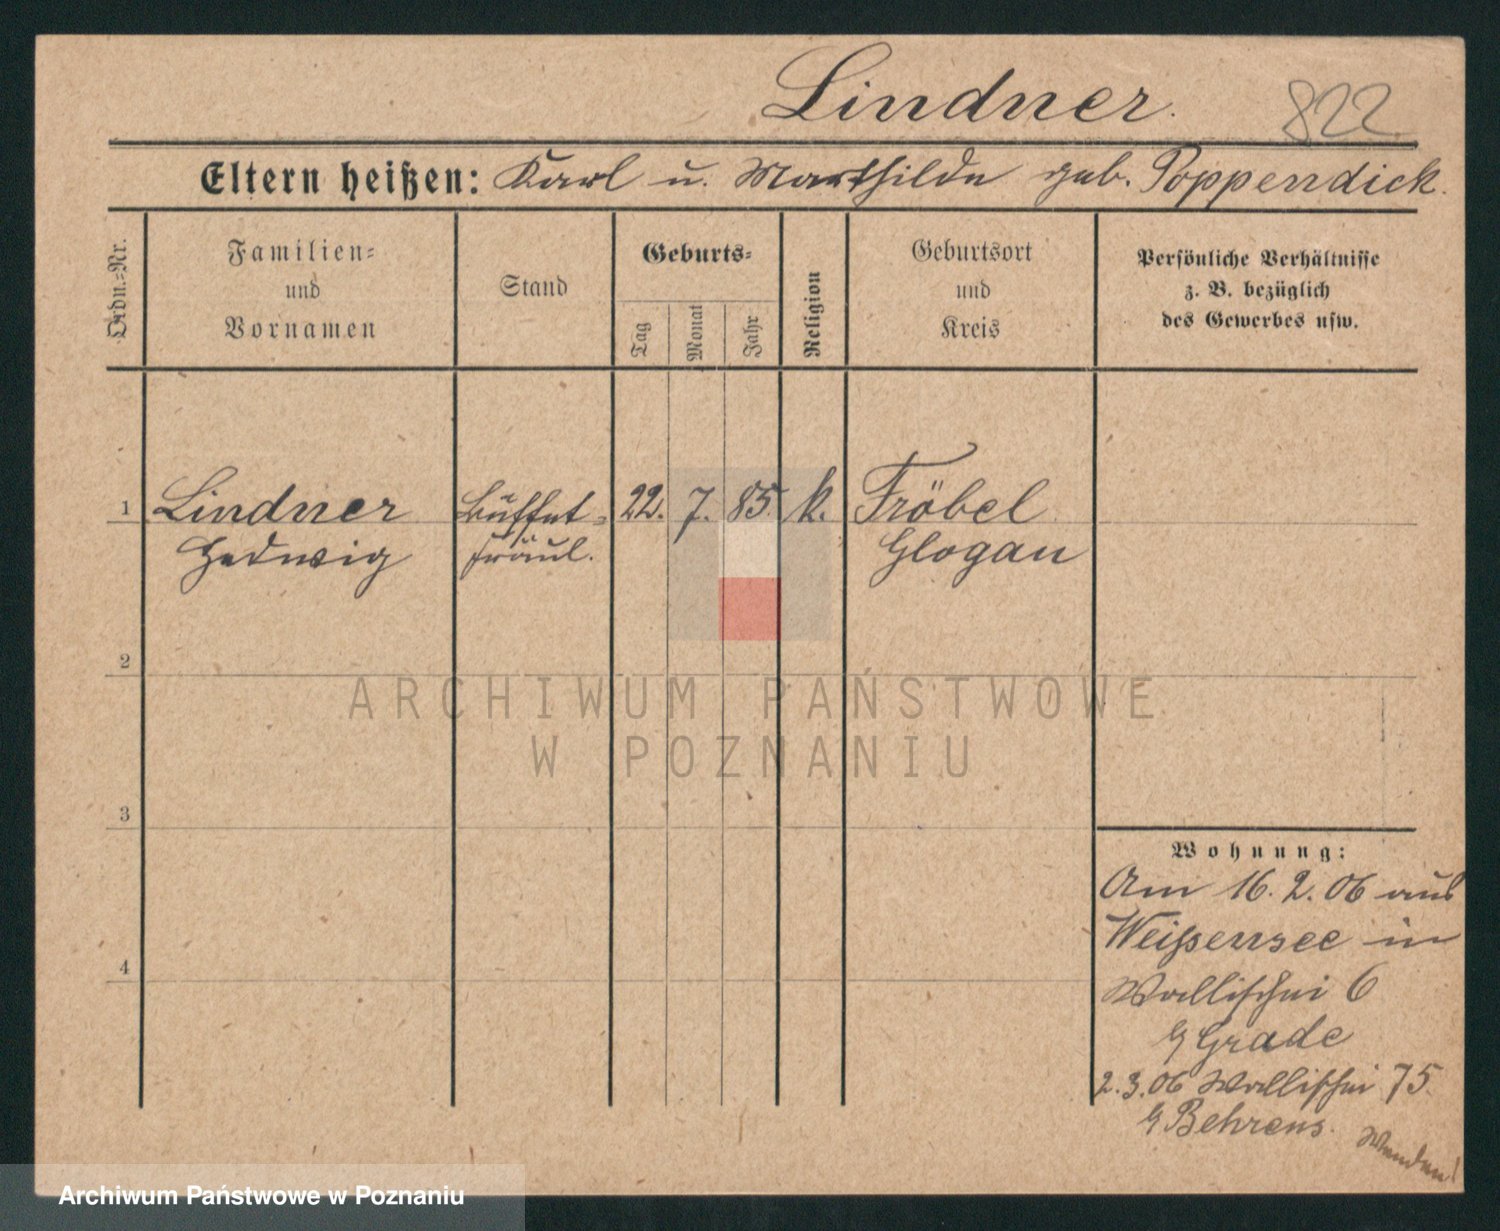 Lindner.
822
Eltern heißen: Karl u. Marthilde geb. Poppendick.
Ordn.-Nr.
Familien-
und
Vornamen
Stand
Geburts-
Tag
Monat
Jahr
Religion
Geburtsort
und
Kreis
Persönliche Verhältnisse
z. B. bezüglich
des Gewerbes usw.
1
Lindner
Hedwig
Büffet-
fräul.
22.
7.
85
k.
Fröbel
Glogau
2
ARCHIWUM PAŃSTWOWE
W POZNANIU
3
4
Wohnung:
Am 16. 2. 06 aus
Weißensee in
Wallischei 6
b/ Grade
2.3.06 Wallischei 75
b/ Behrens.
Wenden!
Archiwum Państwowe w Poznaniu